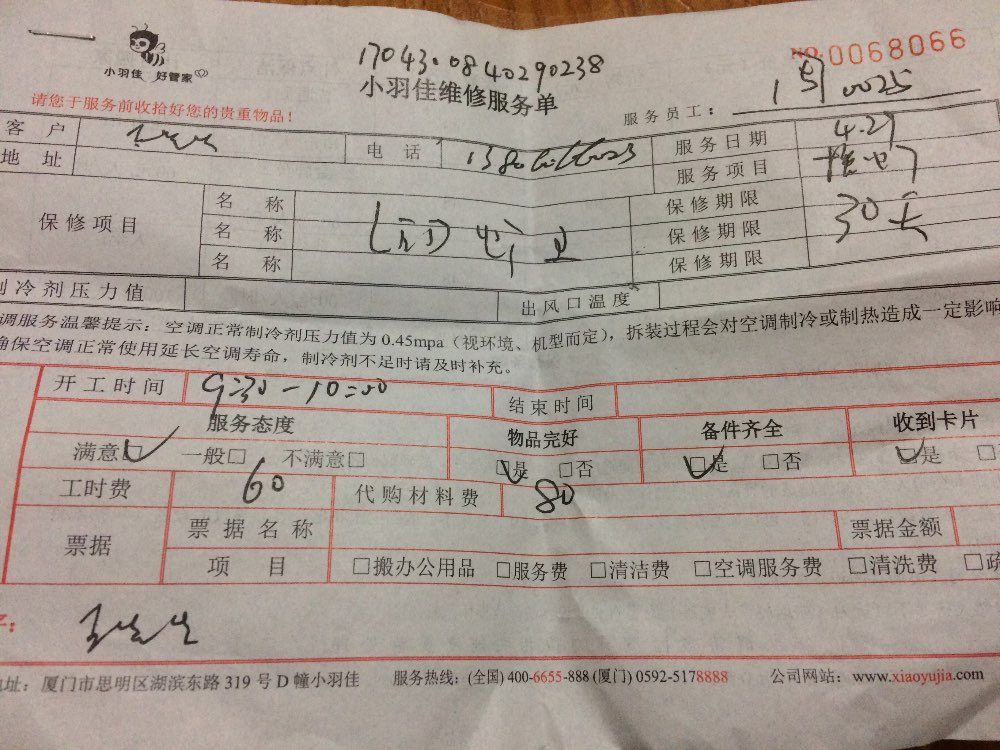 小羽佳 好管家
170430840290238
NO.0068066
小羽佳维修服务单
请您于服务前收拾好您的贵重物品！
服务员工： 0025
客 户 电 话 服务日期 4.27
地 址 服务项目
保修项目 名 称 保修期限
名 称 保修期限 30天
名 称 保修期限
制冷剂压力值 出风口温度
调服务温馨提示：空调正常制冷剂压力值为 0.45mpa（视环境、机型而定），拆装过程会对空调制冷或制热造成一定影响
确保空调正常使用延长空调寿命，制冷剂不足时请及时补充。
开工时间 9:30-10:00 结束时间
服务态度 物品完好 备件齐全 收到卡片
满意□ 一般□ 不满意□ □是 □否 □是 □否 □是 □
工时费 60 代购材料费 80
票据 票据名称 票据金额
项 目 □搬办公用品 □服务费 □清洁费 □空调服务费 □清洗费 □疏
地址：厦门市思明区湖滨东路 319 号 D 幢小羽佳 服务热线：(全国) 400-6655-888 (厦门) 0592-5178888 公司网站：www.xiaoyujia.com